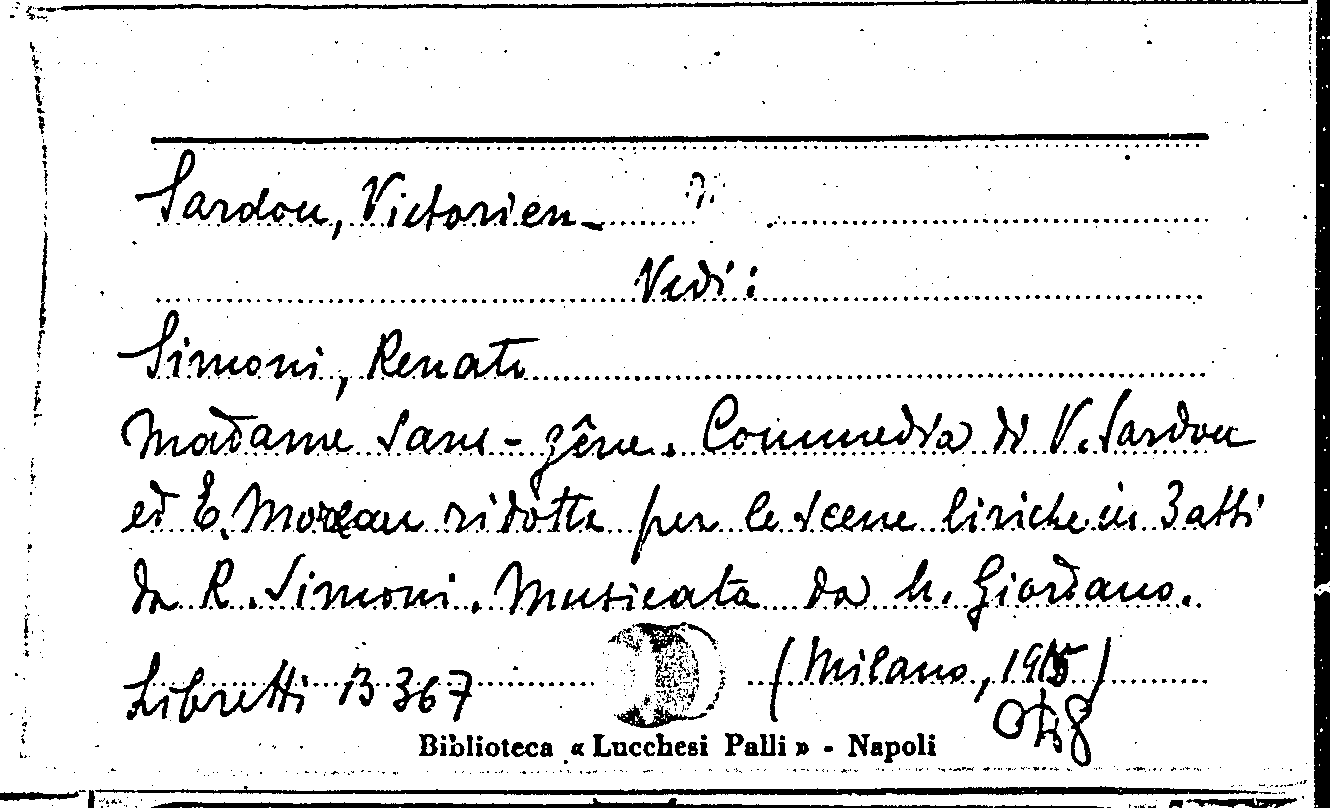 Sardou, Victorien-
Vedi:
Simoni, Renato
Madame Sans-gêne. Commedia di V. Sardou
ed E. Moreau ridotta per le scene liriche in 3 atti
da R. Simoni. Musicata da U. Giordano.
Libretti B 367 (Milano, 1915)
Biblioteca « Lucchesi Palli » - Napoli